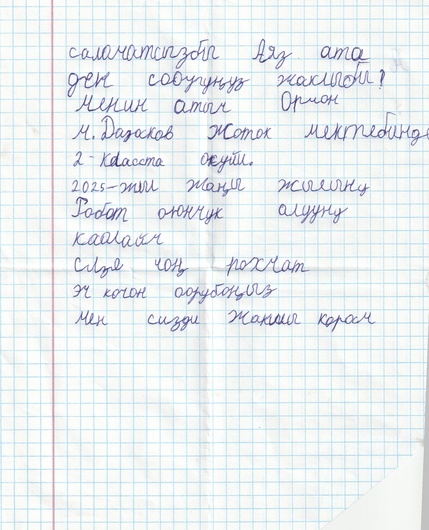 саламатсызбы Аяз ата
ден соолугуңуз жакшыбы?
Менин атым Ормон
М.Дадасков Жоток мектебинде
2-класста окуйм.
2025-жыл жаңы жылыңы
Робот оюнчук алууну
каалайм
Сизге чоң рахмат
Эч кочон оорубоңыз
Мен сизди жакшы корөм